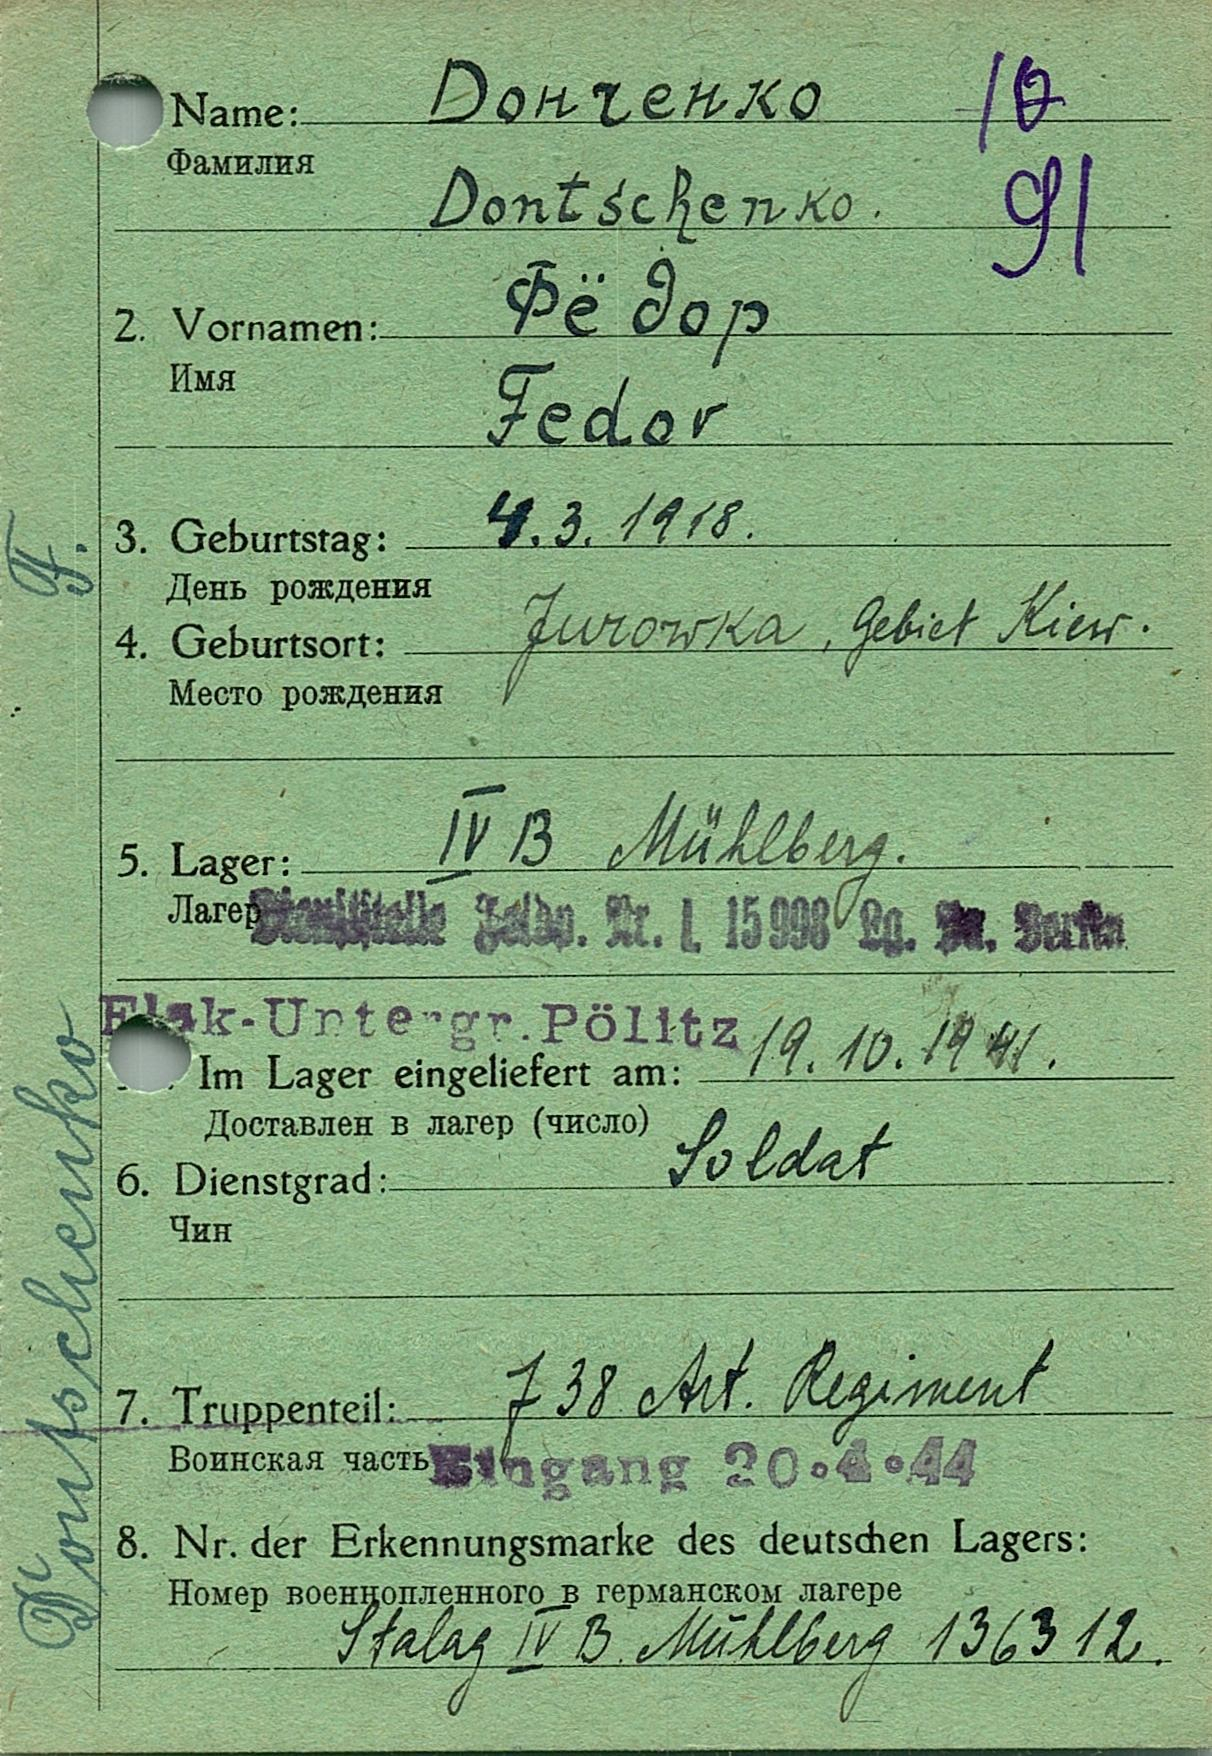 Name: Донченко 10
Фамилия
Dontschenko. 91
2. Vornamen: Фёдор
Имя
Fedor
3. Geburtstag: 4.3.1918.
День рождения
4. Geburtsort: Jurowka, Gebiet Kiew.
Место рождения
5. Lager: IV B Mühlberg.
Лагер Dienststelle Feldp. Nr. L 15998 Lg. Pa. Berlin
Flak-Untergr. Pölitz
Im Lager eingeliefert am: 19.10.1941.
Доставлен в лагер (число)
6. Dienstgrad: Soldat
Чин
7. Truppenteil: 738 Art. Regiment
Воинская часть Eingang 20.4.44
8. Nr. der Erkennungsmarke des deutschen Lagers:
Номер военнопленного в германском лагере
Stalag IV B Mühlberg 136312.
Dontschenko F.